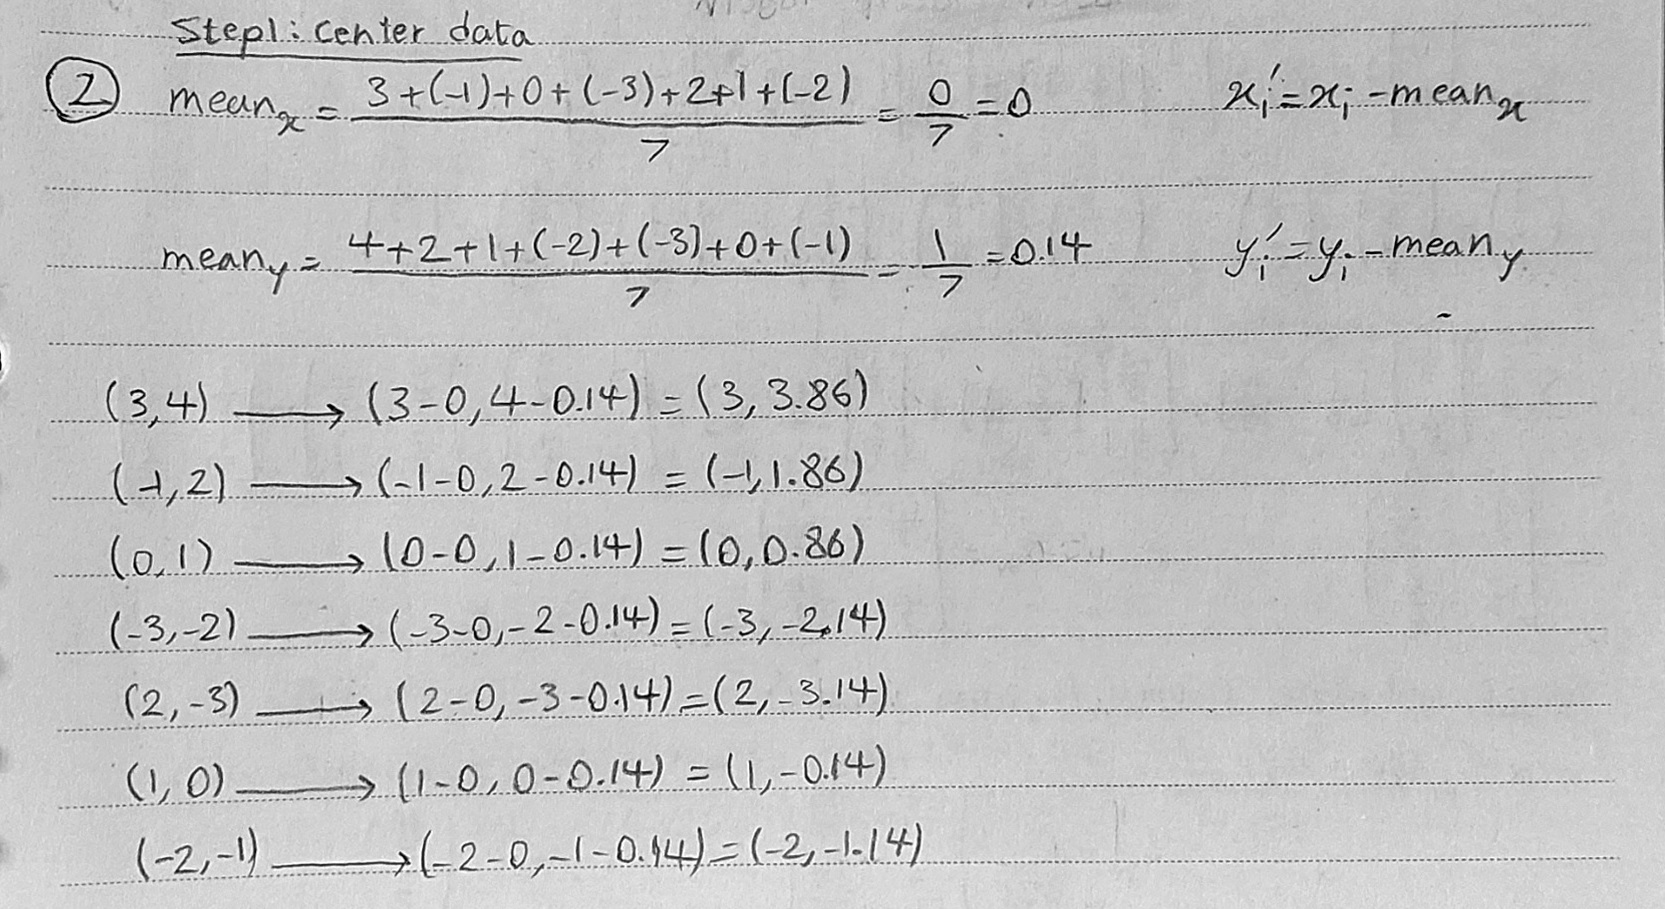 Step1: center data
② mean_x = (3+(-1)+0+(-3)+2+1+(-2))/7 = 0/7 = 0    x_i' = x_i - mean_x
mean_y = (4+2+1+(-2)+(-3)+0+(-1))/7 = 1/7 = 0.14    y_i' = y_i - mean_y
(3,4) ⟶ (3-0, 4-0.14) = (3, 3.86)
(-1,2) ⟶ (-1-0, 2-0.14) = (-1, 1.86)
(0,1) ⟶ (0-0, 1-0.14) = (0, 0.86)
(-3,-2) ⟶ (-3-0, -2-0.14) = (-3, -2.14)
(2,-3) ⟶ (2-0, -3-0.14) = (2, -3.14)
(1,0) ⟶ (1-0, 0-0.14) = (1, -0.14)
(-2,-1) ⟶ (-2-0, -1-0.14) = (-2, -1.14)